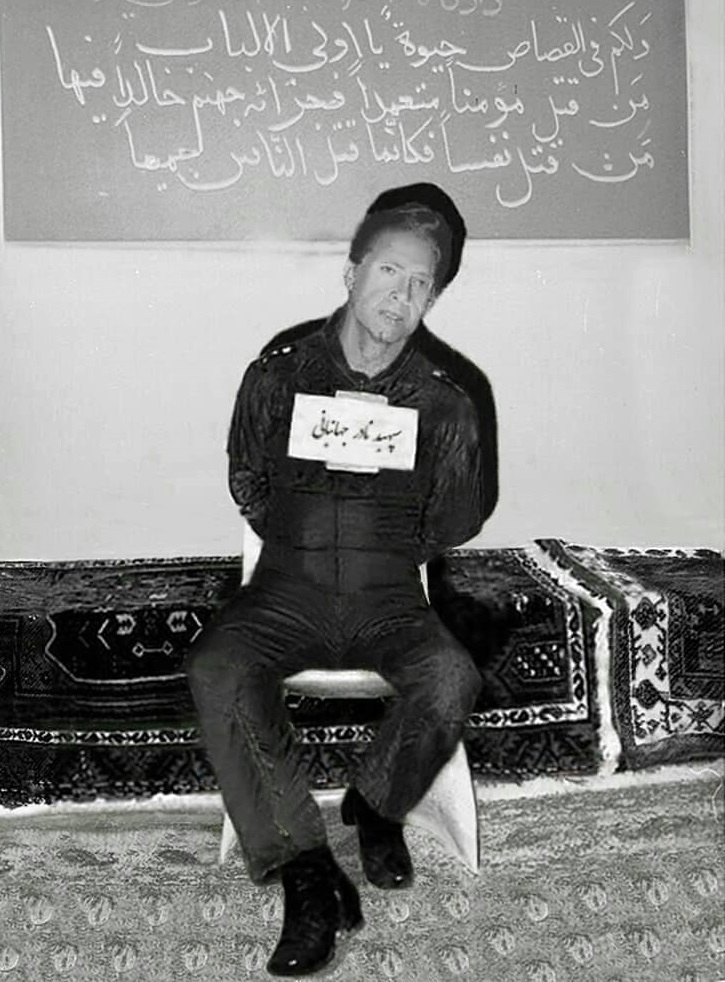 ولكم فى القصاص حيوة يا اولى الالباب
من قتل مؤمناً متعمداً فجزائه جهنم خالداً فيها
من قتل نفساً فكانّما قتل النّاس جميعاً
سپهبد نادر جهانبانی